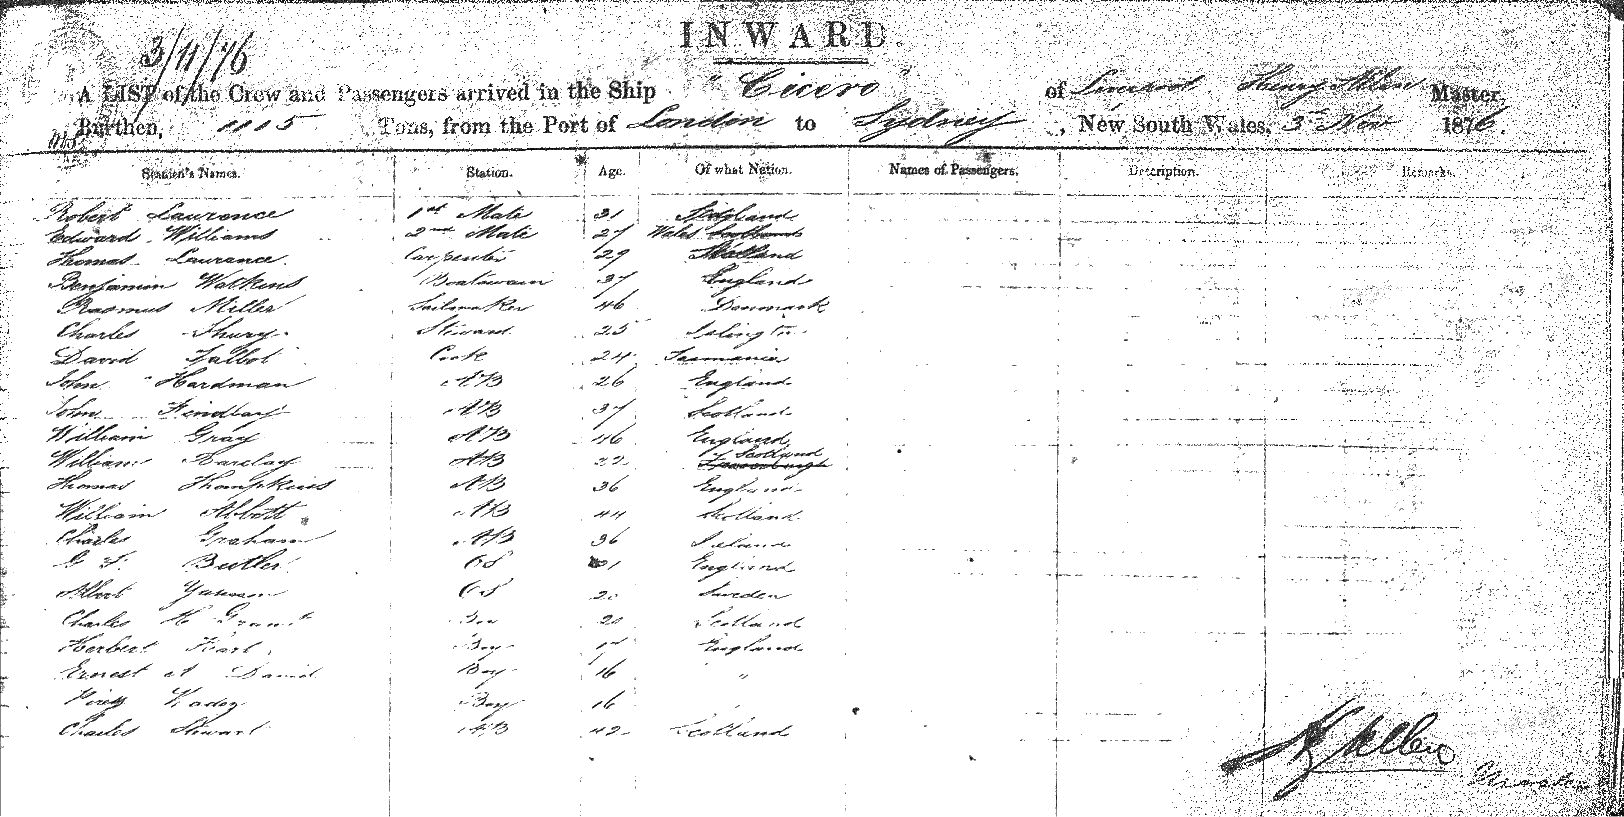 INWARD.
3/11/76
A LIST of the Crew and Passengers arrived in the Ship "Cicero" of Henry Allen Master,
Burthen, 1115 Tons, from the Port of London to Sydney, New South Wales, 3rd Nov 1876.
Seamen's Names. Station. Age. Of what Nation. Names of Passengers. Description. Remarks.
Robert Lawrence 1st Mate 31
Edward Williams 2nd Mate 27 Wales Scotland
Thomas Laurance Carpenter 29
Benjamin Watkins Boatswain 37 England
Rasmus Miller Sailmaker 46 Denmark
Charles Steward 25 Islington
David Talbot Cook 24 Tasmania
John Hardman AB 26 England
John Findlay AB 37 Scotland
William Gray AB 46 England
William Barclay AB 22 Scotland
Thomas Thompkins AB 36 England
William Abbott AB 44
Charles Graham AB 36 Ireland
Butler OS 21 England
Albert OS 20 Sweden
Charles H Grant Boy 20 Scotland
Herbert Boy 17 England
Ernest A David Boy 16 "
Boy 16
Charles Stewart AB 42 Scotland
H Allen
Master